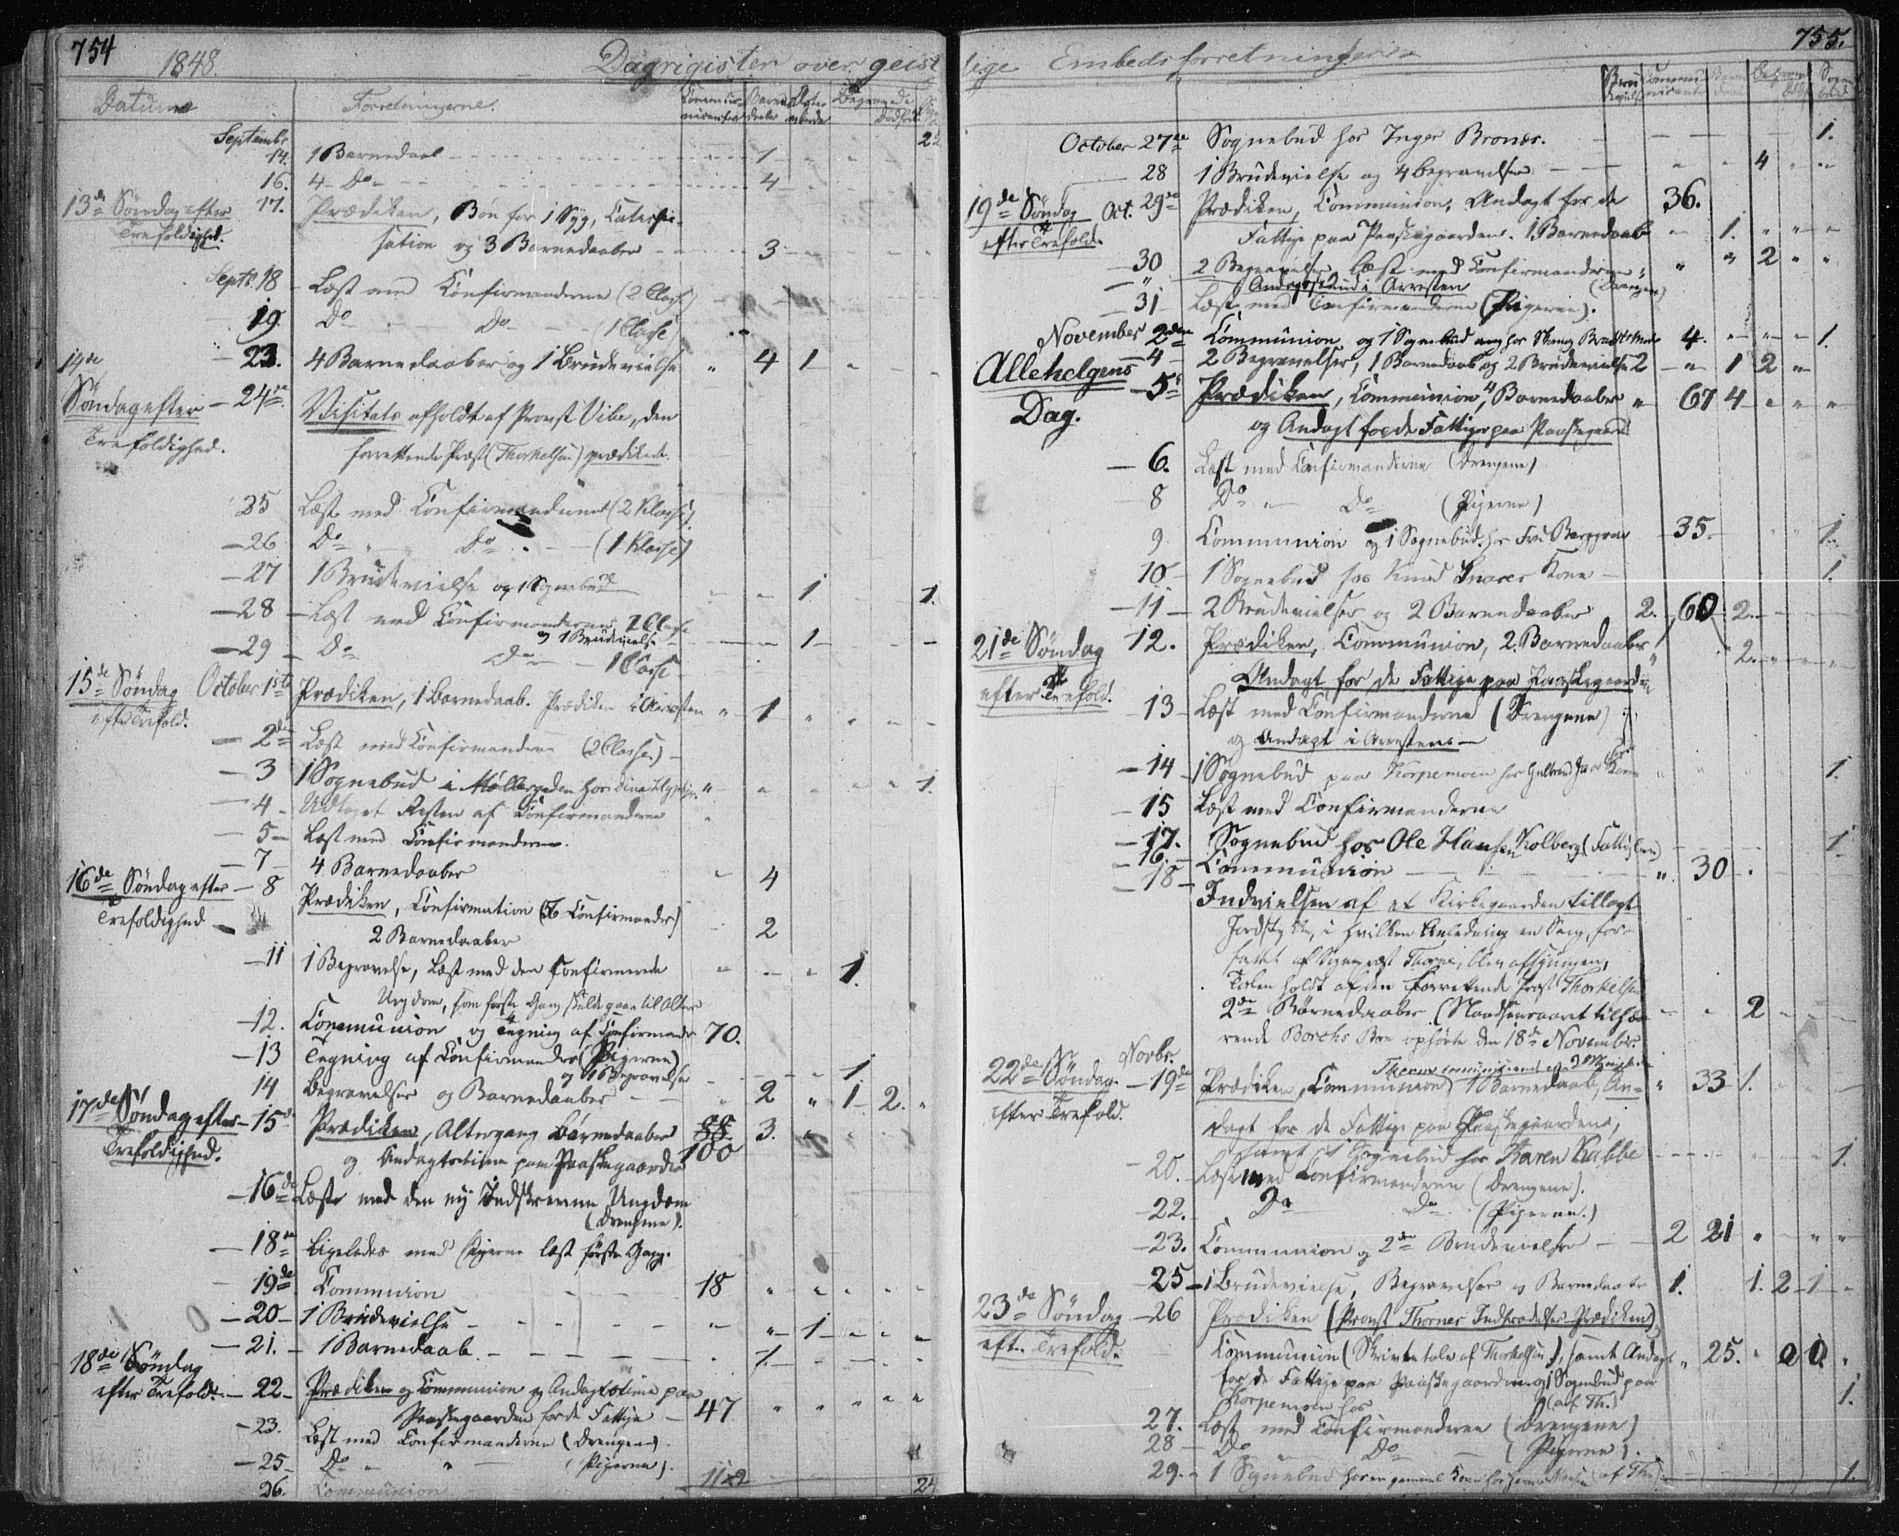 754
1848.
Dagrigister over geist
Datum
Forretningerne.
Septembr 14. 1 Barnedaab 1
16. 4 Do 4
13de Søndag efter Trefoldighed. 17. Prædiken, Bøn for 1 Syg, Catechi-
sation og 3 Barnedaaber 3
Septr. 18 Læst med Confirmanderne (2 Classe)
19. Do Do (1 Classe)
14de
23. 4 Barnedaaber og 1 Brudevielse 4 1
Søndag efter Trefoldighed. 24de Visitats afholdt af Provst Vibe, den
forrettende Præst (Thorkelsen) prædikede.
25 Læst med Confirmanderne (2 Klasse)
26 Do Do (1 Klasse)
27 1 Brudevielse og 1 Sognebud 1 1.
28 Læst med Confirmanderne 2 Classe
og 1 Brudevielse 1
29 Do Do 1 Classe
15de Søndag efter Trefold. October 1ste Prædiken, 1 Barnedaab. Prædiken i Arresten 1
2den Læst med Confirmanderne (2 Classe)
3 1 Sognebud i Møllergaden hos 1.
4 Udtaget Resten af Confirmanderne
5 Læst med Confirmanderne.
7 4 Barnedaaber 4
16de Søndag efter Trefoldighed 8 Prædiken, Confirmation (56 Confirmander)
2 Barnedaaber 2
11 1 Begravelse, Læst med den Confirmerede 1.
Ungdom, som første Gang skulde gaae til Alters
12. Communion og Tegning af Confirmander 70.
13 Tegning af Confirmander (Pigerne)
og 1 Begravelse 1
14 Begravelser og Barnedaaber 2 1 2.
17de Søndag efter Trefoldighed. 15de Prædiken, Altergang Barnedaaber 88 3.
og Andagtstime paa Paaskegaarden 100
16de Læste med den ny Indskrevne Ungdom
(Drengene).
18de Ligeledes med Pigerne læst første Gang.
19de Communion 18
20 1 Brudevielse 1
21. 1 Barnedaab. 1
18de Søndag efter Trefold. 22 Prædiken og Communion og Andagtstime paa
Paaskegaarden for de Fattige 47
23. Læst med Confirmanderne (Drengene).
25 Do (Pigerne).
26. Communion
24
755.
lige Embedsforretninger
October 27de Sognebud hos Inger Bronæs. 1.
28 1 Brudevielse og 4 begravelser 4
19de Søndag efter Trefold. Oct. 29de Prædiken, Communion, Andagt for de 36.
Fattige paa Paaskegaarden. 1 Barnedaab 1.
30 2 Begravelser læst med Confirmanderne, 2
(Drengene)
Andagtsstund i Arresten
31 Læst med Confirmanderne (Pigerne).
November 2den Communion og 1 Sognebud 4. 1.
4 2 Begravelser, 1 Barnedaab og 2 Brudevielse 2 1 2
Allehelgens Dag. 5te Prædiken, Communion, 4 Barnedaaber 67 4
og Andagt for de Fattige paa Paaskegaard
6. Læst med Confirmanderne (Drengene)
8 Do Do (Pigerne)
9. Communion og 1 Sognebud hos Fru 35. 1.
10 1 Sognebud hos Knud Snares Kone 1.
11 2 Brudevielser og 2 Barnedaaber 2. 60 2.
21de Søndag efter Trefold. 12. Prædiken, Communion, 2 Barnedaaber 2.
Andagt for de Fattige paa Paaskegaarden
13 Læst med Confirmanderne (Drengene)
og Andagt i Arresten
14 1 Sognebud paa Korpemoen hos 1.
15 Læst med Confirmanderne
17. Sognebud hos Ole Hansen Kolberg (Fattiglem) 1.
16. Communion 30
18 Indvielsen af et Kirkegaarden tillagt
Jordstykke, i hvilken Anledning en Sang, for-
fattet af Sognepræst Thorne, blev afsjungen,
Talen holdt af den forrettende Præst Thorkelsen
2de Barnedaaber (Naadsensaaret tilhø- 2
rende Borchs Boe ophørte den 18de November.
22de Søndag efter Trefold. Novbr. 19de Prædiken, Communion, 1 Barnedaab, An- 33 1.
dagt for de Fattige paa Paaskegaarden,
samt 1 Sognebud hos Karen Kabbe 1.
20. Læst med Confirmanderne (Drengene).
22. Do Do (Pigerne.)
23. Communion og 2de Brudevielser 2 21
25 1 Brudevielse, Begravelser og Barnedaab 1. 1. 2 1
23de Søndag eft. Trefold. 26 Prædiken (Provst Thornes Indtrædelses Prædiken),
Communion (Skriftetale af Thorkelsen), samt Andagt 25.
for de Fattige paa Paaskegaarden og 1 Sognebud paa
Korpemoen hos (af Th.) 1.
27. Læst med Confirmanderne (Drengene)
28 Do Do (Pigerne).
29. 1 Sognebud hos en gammel Kone (af Th.) 1.